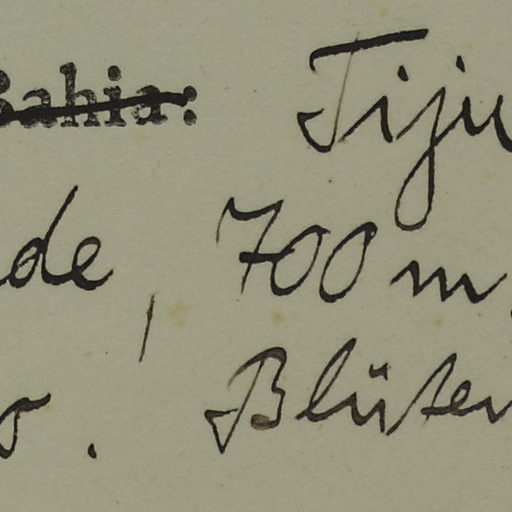 Bahia: Tiju
de, 700 m
o. Blüten